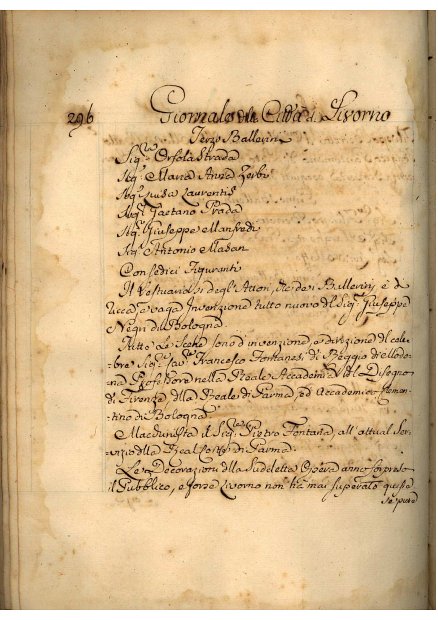 296 Giornale della Città di Livorno
Terzi Ballerini
Sig.ra Orsola Strada
Sig.ra Maria Anna Zerbi
Sig.ra Luisa Laurentis
Sig.r Gaetano Prada
Sig.r Giuseppe Manfredi
Sig.r Antonio Masan
Con sedici Figuranti
Il Vestuario, sì degl'Attori, che de i Ballerini, è di
ricca, e vaga Invenzione tutto nuovo del Sig.r Giuseppe
Negri di Bologna.
Tutte Le Scene sono d'invenzione, e direzione del cele-
bre Sig.r Francesco Fontanesi di Reggio di
na Professore nella Reale Accademia del Disegno
di Firenze, della Reale di Parma, ed Accademico Clemen-
tino di Bologna
Macchinista il Sig.r Pietro Fontana, all'attual Ser-
vizio della Real Corte di Parma.
Le Decorazioni della Sudetta Opera anno sorpreso
il Pubblico, e forse Livorno non ha mai superato queste
se pure